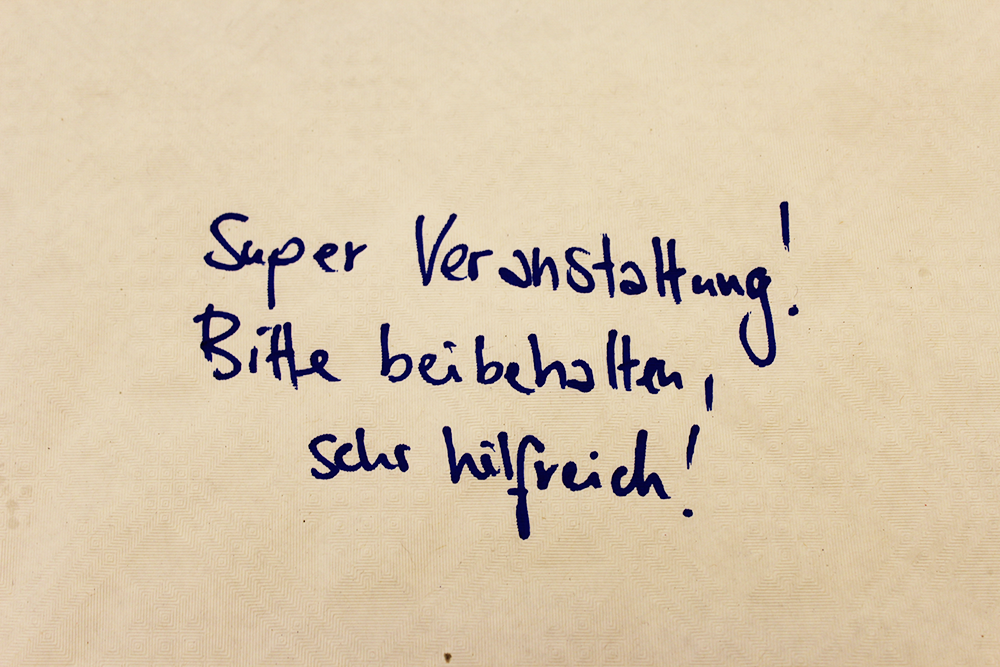 Super Veranstaltung!
Bitte beibehalten,
sehr hilfreich!